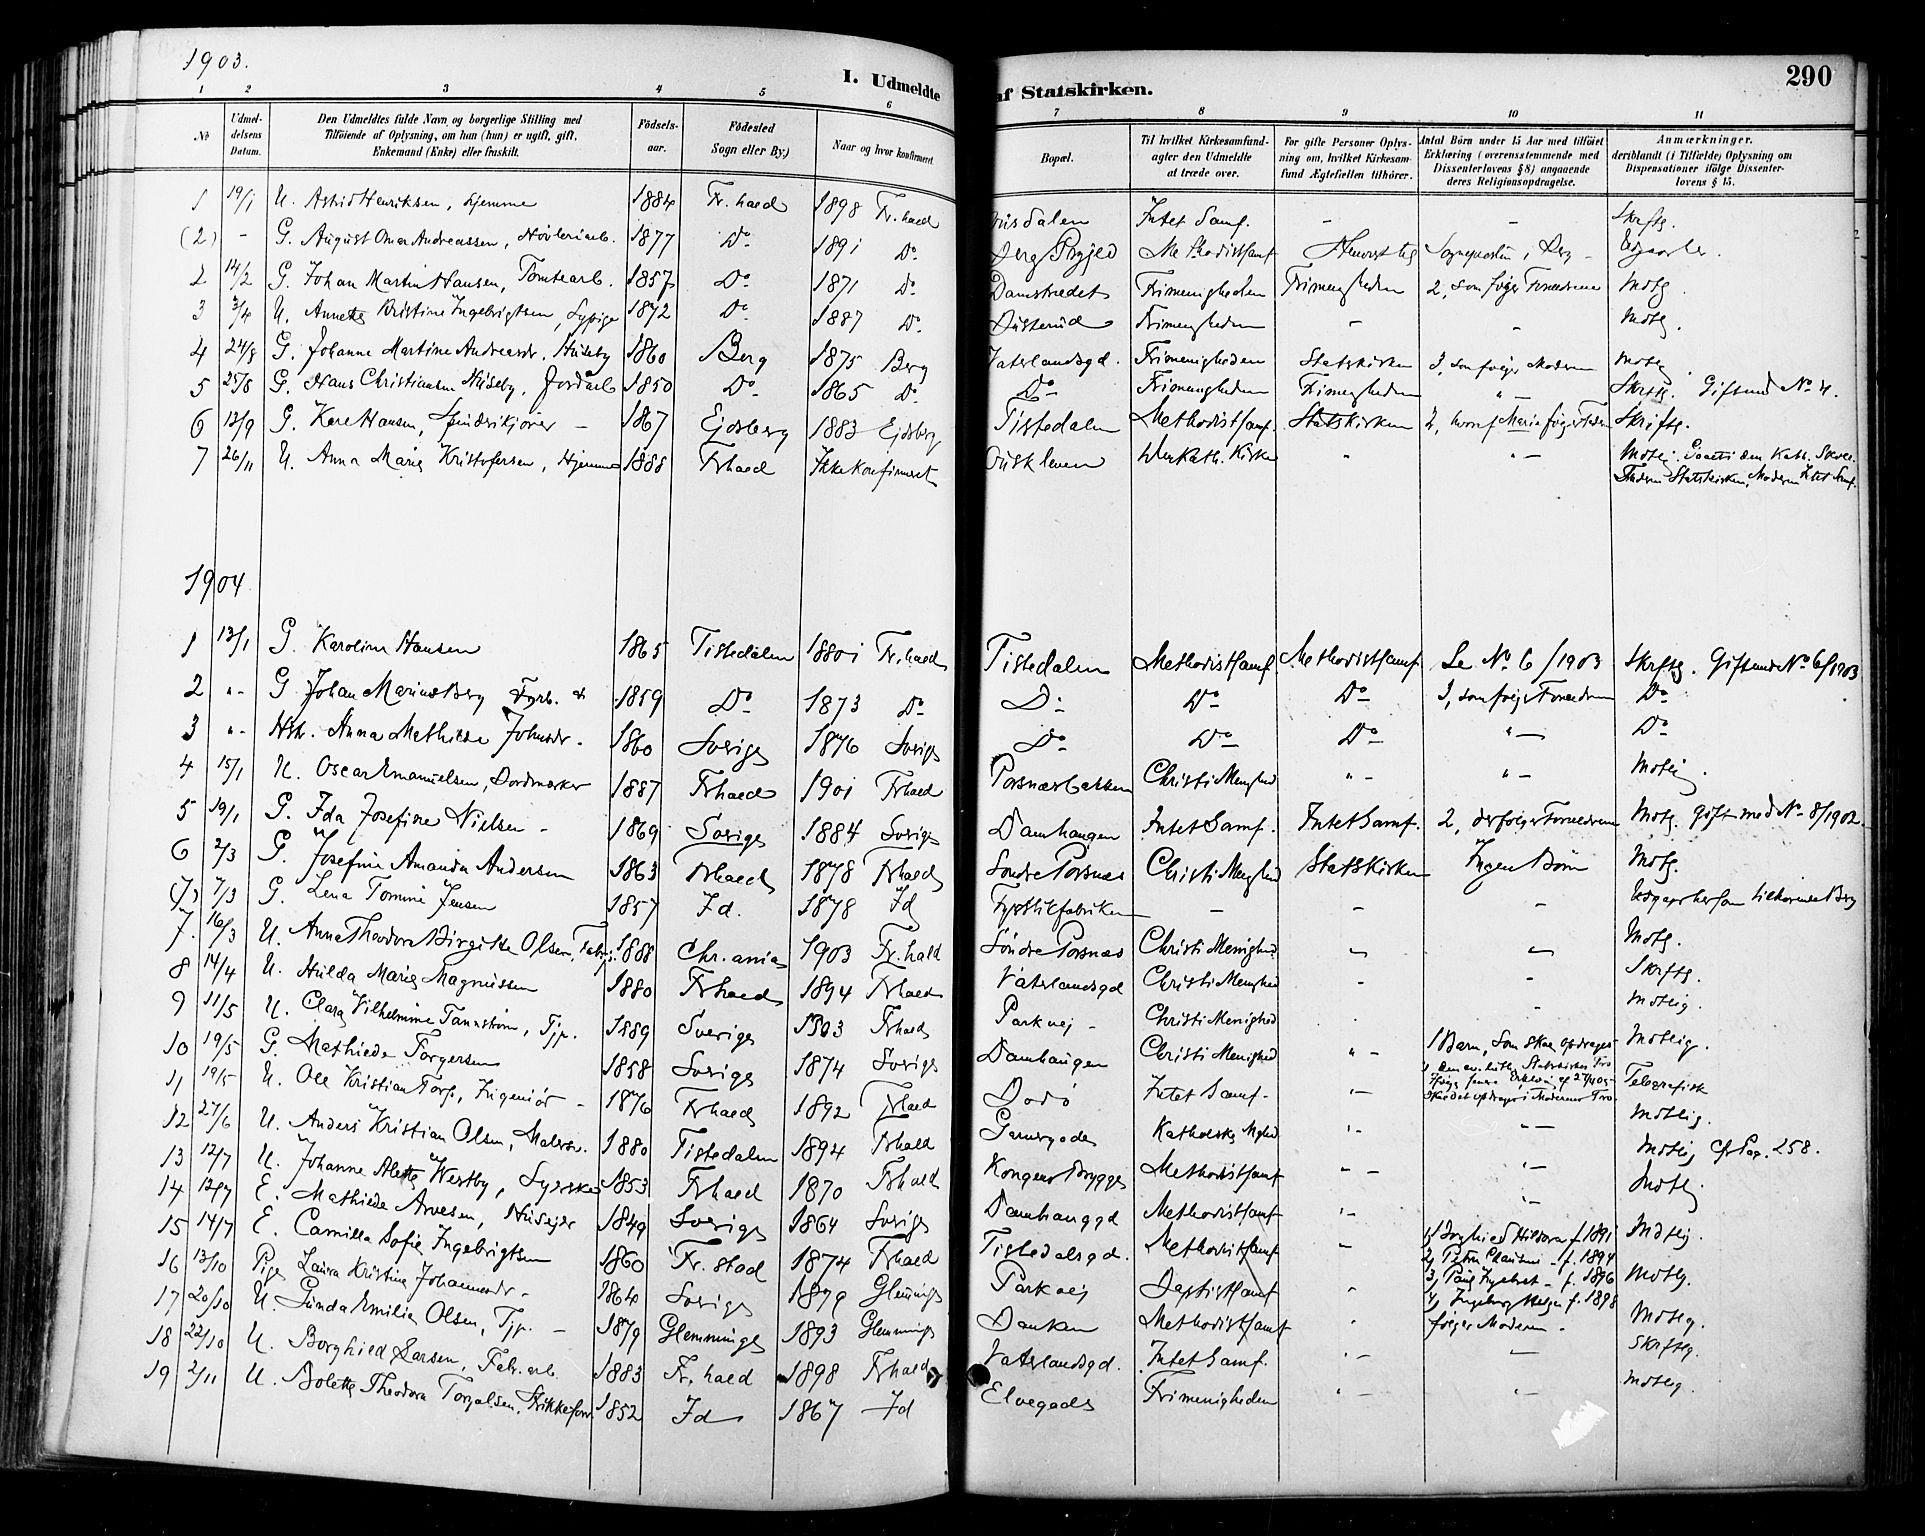 1903.
I. Udmeldte af Statskirken.
290
1 2 3 4 5 6 7 8 9 10 11
No
Udmeldelsens Datum.
Den Udmeldtes fulde Navn og borgerlige Stilling med Tilføiende af Oplysning, om han (hun) er ugift, gift, Enkemand (Enke) eller fraskilt.
Fødselsaar.
Fødested Sogn eller By)
Naar og hvor konfirmeret
Bopæl.
Til hvilket Kirkesamfund agter den Udmeldte at træde over.
For gifte Personer Oplysning om, hvilket Kirkesamfund Ægtefællen tilhører.
Antal Börn under 15 Aar med tilföiet Erklæring (overensstemmende med Dissenterlovens § 8) angaaende deres Religionsopdragelse.
Anmærkninger. deriblandt (i Tilfælde) Oplysning om Dispensationer ifölge Dissenterlovens § 15.
1 19/1 U. Astrid Henriksen, Hjemme 1884 Fr.hald 1898 Fr.hald Intet Samf. - - Skriftl.
(2) - G. August Omar Andreassen, 1877 Do 1891 Do Methodistsamf.
2 14/2 G. Johan Martin Hansen, Tomtearb. 1857 Do 1871 Do Damstrædet Frimenigheden Frimenigheden 2, som følger Forældrene Mdtl.
3 3/4 U. Annette Kristine Ingebrigtsen, Sypige 1872 Do 1887 Do Frimenigheden - - Mdtl.
4 24/8 G. Johanne Martine Andreasdr. Huseby 1860 Berg 1875 Berg Vaterlandsgd. Frimenigheden Statskirken 3, som følger Moderen Mdtl.
5 25/8 G. Hans Christiansen Huseby, Jordarb 1850 Do 1865 Do Do Frimenigheden Frimenigheden " - Skriftl. Gift med No 4.
6 12/9 G. Kare Hansen, 1867 Ejdsberg 1883 Ejdsberg Tistedalen Methodistsamf. Statskirken 2, hvoraf Marie følger Faderen Skriftl.
7 26/11 U. Anna Marie Kristofersen, Hjemme 1888 Frhald Ikke konfirmeret Den Kath. Kirke " " - Mdtlig. den Kath. Skole. Faderen Statskirken, Moderen Intet Samf.
1904.
1 13/1 G. Karoline Hansen 1865 Tistedalen 1880 Fr.hald Tistedalen Methodistsamf. Methodistsamf. Se No 6/1903 Skriftlg. Gift med No 6/1903
2 "- G. Johan Marius Berg 1859 Do 1873 Do Do Do Do 3, som følger Forældrene Do
3 "- Hstr. Anna Mathilde Johnsdr. 1860 Sverige 1876 Sverige Do Do Do " - Do
4 15/1 U. Oscar Emanuelsen, 1887 Frhald 1901 Frhald Porsnæsbakken Christi Menighed " - " - Mdtlig.
5 19/1 G. Ida Josefine Nielsen - 1869 Sverige 1884 Sverige Damhaugen Intet Samf. Intet Samf. 2, der følger Forældrene Mdtlg. Gift med No 8/1902
6 2/3 G. Josefine Amanda Andersen 1863 Frhald 1878 Frhald Søndre Porsnæs Christi Menighed Statskirken Ingen Børn Mdtlg.
(7) 7/3 G. Lena Tomine Jensen 1857 Id. 1878 Id - - - Berg
7. 16/3 U. Anna Theodora Birgitte Olsen, 1888 Chr.ania 1903 Fr.hald Søndre Porsnæs Christi Menighed Mdtlg.
8 14/4 U. Hulda Marie Magnussen 1880 Frhald 1894 Frhald Vaterlandsgd Christi Menighed - - Skriftlg.
9 11/5 U. Clara Vilhelmine Tannstrøm, Tjp. 1889 Sverige 1903 Frhald Parkvej - Christi Menighed - Mdtlig.
10 19/5 G. Mathilde Torgersen 1858 Sverige 1874 Sverige Damhaugen Christi Menighed " - 1 Barn, som skal opdrages i den ev. luth. Statskirkes Tro Mdtlig.
11 19/5 U. Ole Kristian Torp, Ingeniør - 1876 Frhald 1892 Frhald Intet Samf. - " - Telegrafisk
12 27/6 U. Anders Kristian Olsen, Malersv. 1880 Tistedalen 1894 Frhald Garvergaden Katholske Mghed " - " - Mdtlig.
13 12/7 U. Johanne Alette Westby, Syerske 1853 Frhald 1870 Frhald Kongens Brygge Methodistsamf " - " - Mdtlig Cfr Pag. 258.
14 12/7 E. Mathilde Arvesen, Husejer 1849 Sverige 1864 Sverige Damhauggd Methodistsamf " - " - Mdtlg
15 14/7 E. Camilla Sofie Ingebrigtsen 1860 Fr.stad 1874 Frhald Tistedalsgd. Methodistsamf - 1, Borghild Hildora f. 1891 2, Petra - f. 1894 3, Paul - f. 1896 4, Ingeborg Helga f. 1898 følger Moderen - Mdtlig.
16 13/10 Pige Laura Kristine Johannesdr - 1864 Sverige 1879 Glemminge Parkvej Baptistsamf - Mdtlg.
17 20/10 U. Gunda Emilie Olsen, Tjp. - 1879 Glemminge 1893 Glemminge Banken Methodistsamf Mdtlig.
18 22/10 U. Borghild Larsen, Fabr.arb. 1883 Fr.hald 1898 Frhald Vaterlandsgd. Intet Samf. " - - Skriftlig.
19 2/11 U. Bolette Theodora Torgalsen, 1852 Id 1867 Id Elvegade Frimenigheden " - " - Mdtlig.